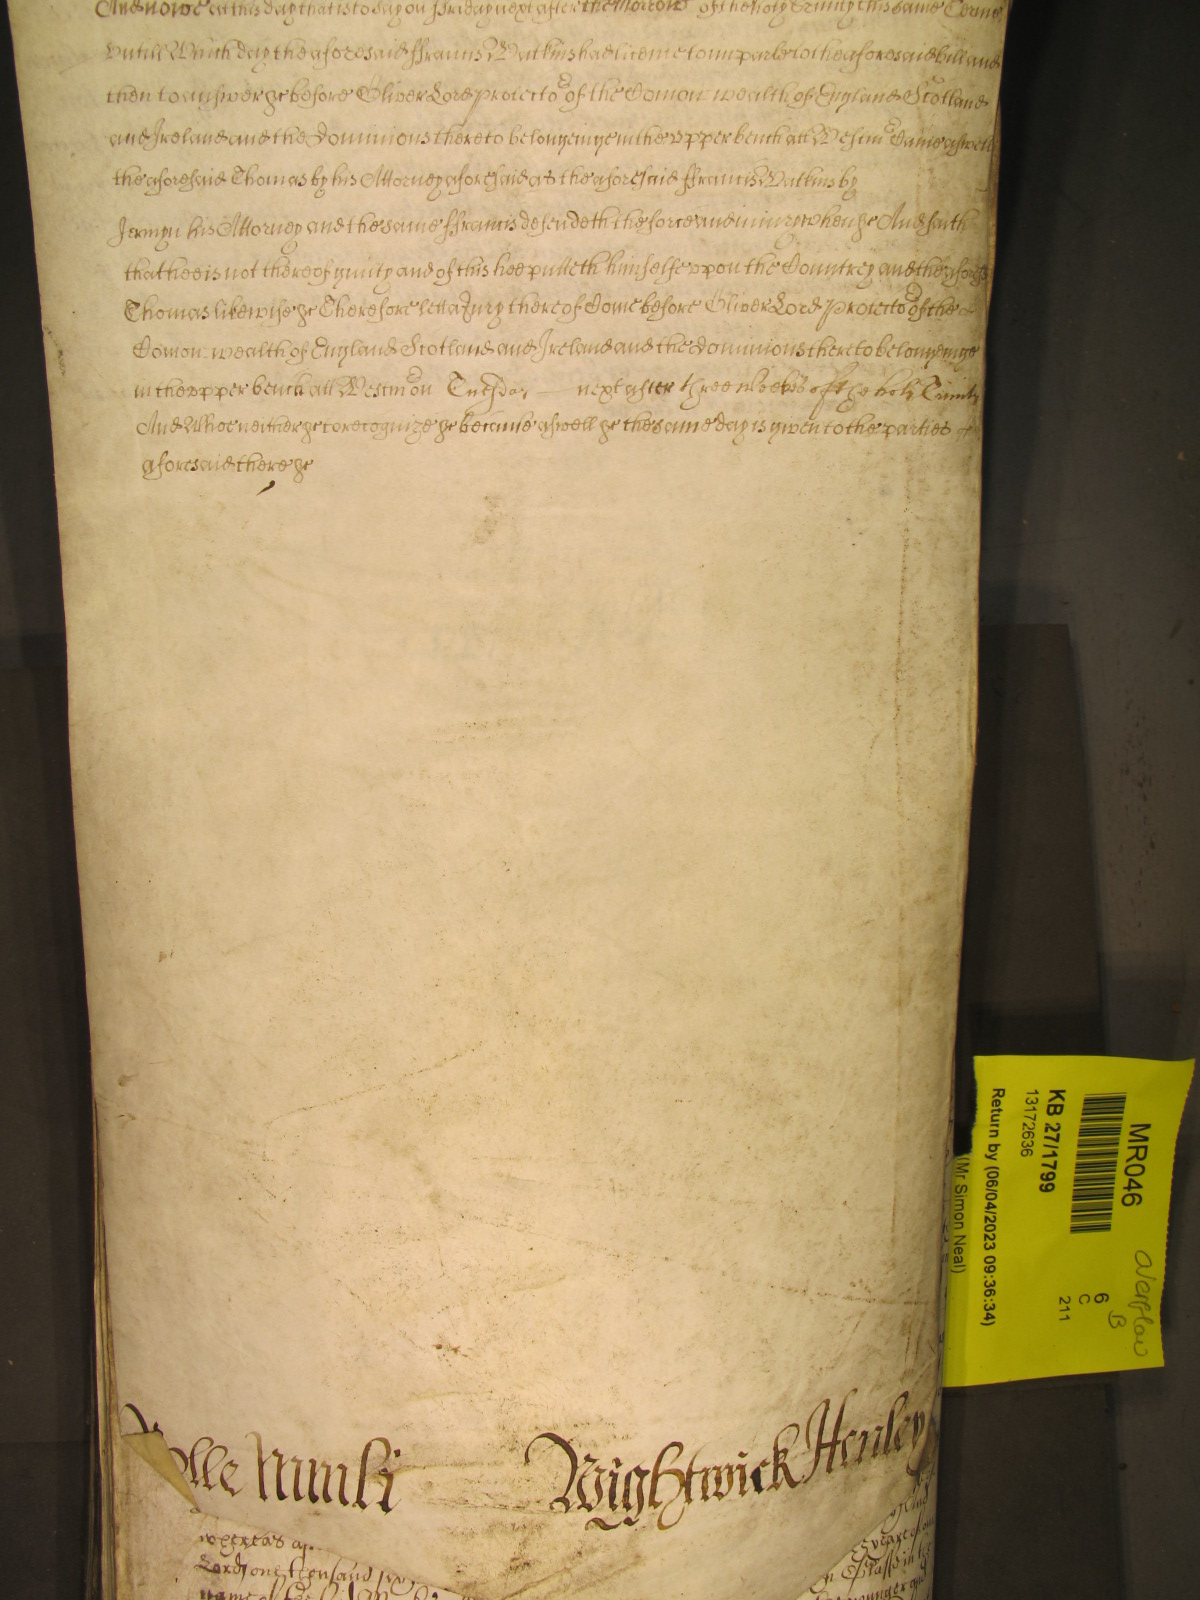 And nowe at this day that is to say on ffriday next after the Morrow of the holy Trinity this same Terme
vntill Which day the aforesaid ffrauncis Watkins had licence to imparle to the aforesaid bill and
then to answer &c before Oliver Lord protector of the Comon wealth of England Scotland
and Ireland and the Dominions thereto belongeinge in the vpper bench att Westm Came aswell
the aforesaid Thomas by his Attorney aforesaid as the aforesaid ffrancis Watkins by
Jermyn his Attorney and the same ffrancis defendeth the force and iniury when &c And saith
that hee is not thereof guilty and of this hee putteth himselfe vpon the Countrey and the aforesd
Thomas likewise &c Therefore lett a Jury thereof Come before Oliver Lord protector of the
Comon wealth of England Scotland and Ireland and the Dominions thereto belongeinge
in the vpper bench att Westm on Tuesday next after three weekes of the holy Trinity
And Who neither &c to recognize &c because aswell &c the same day is given to the parties
aforesaid there &c
Rolle Wightwick Henley
whereas
Lord one thousand
name of the
MR046
KB 27/1799
13172636
Return by (06/04/2023 09:36:34)
(Mr Simon Neal)
overflow
6 B
C
211